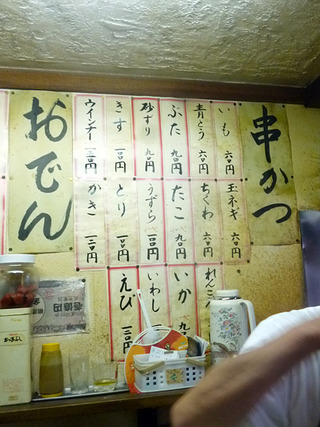 串かつ
いも 六〇円
青とう 六〇円
ぶた 九〇円
砂ずり 九〇円
きす 一二〇円
ウインナー 一二〇円
玉ネギ 六〇円
ちくわ 六〇円
たこ 九〇円
うずら 一二〇円
とり 一二〇円
かき 一二〇円
れんこん
いか 九
いわし
えび 一二〇
おでん